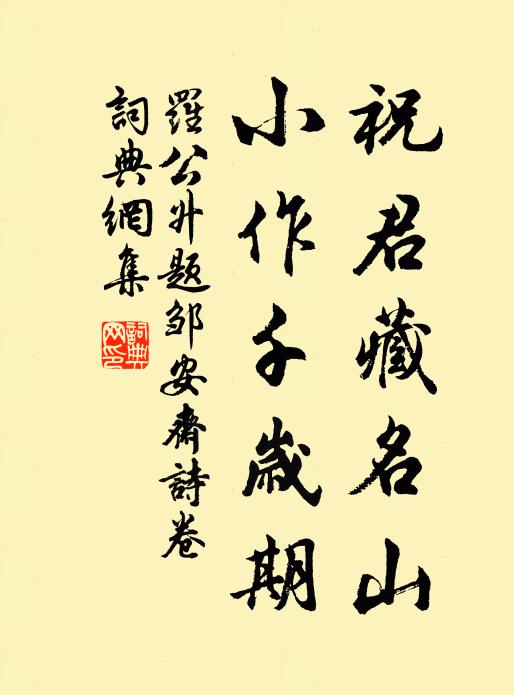 祝君藏名山
小作千歲期
羅公升題邹安齋詩卷
詞典網集
詞典网印